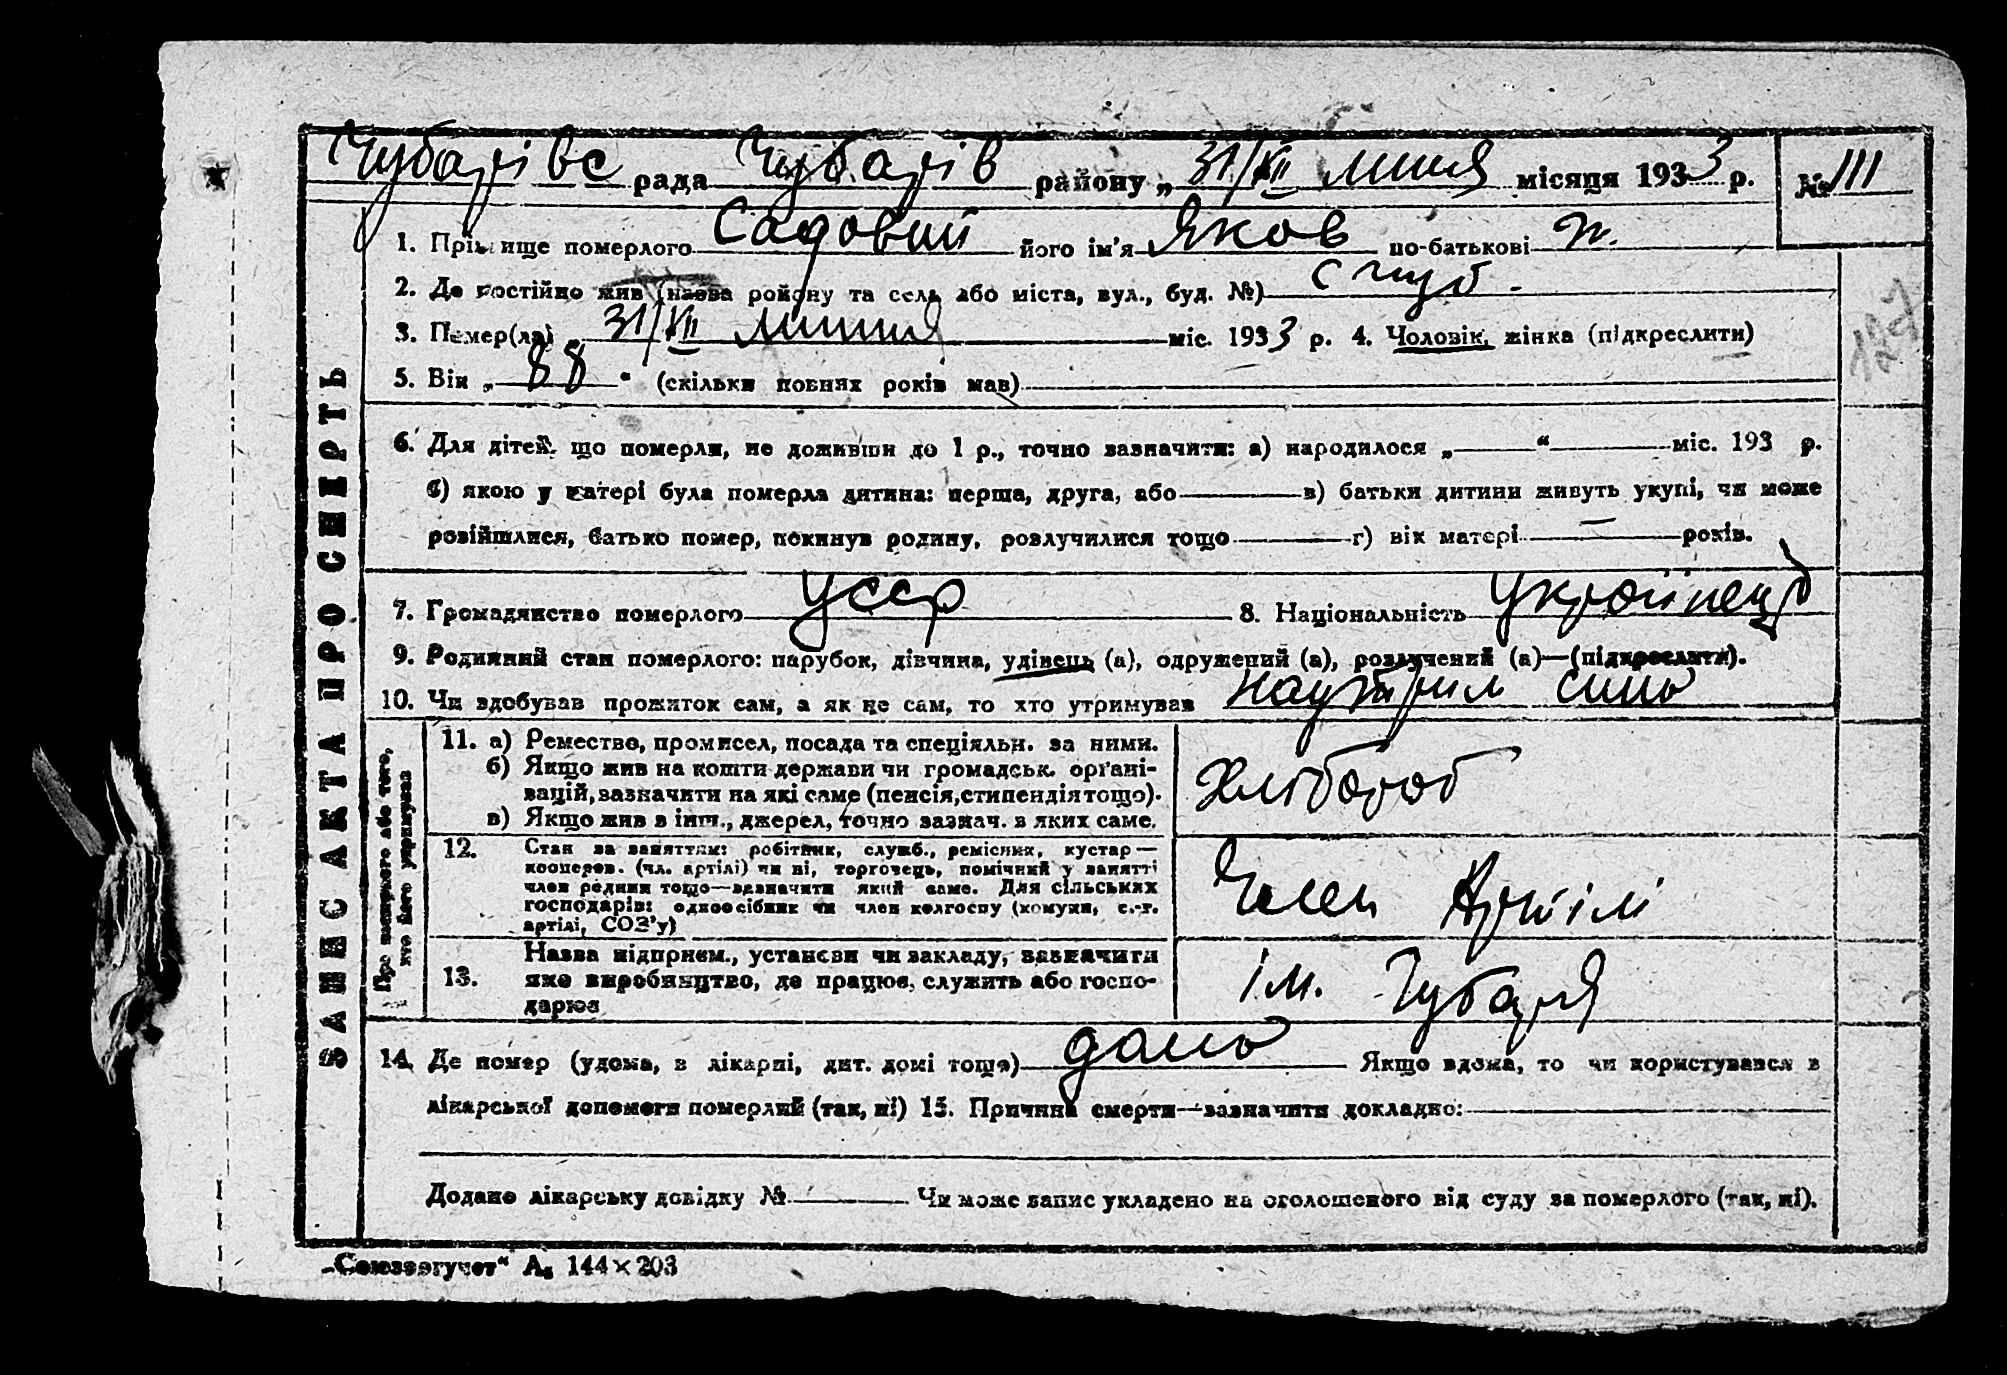 Чубарівс рада Чубарів району „ 31/XII липня місяця 1933 р. № 111
1. Прізвище померлого Садовий його ім'я Яков по-батькові п.
2. Де постійно жив (назва району та села або міста, вул., буд. №) с чуб.
3. Помер(ла) „ 31/XII липня міс. 1933 р. 4. Чоловік, жінка (підкреслити)
127
5. Вік „ 88 “ (скільки повних років мав)
6. Для дітей, що померли, не доживши до 1 р., точно зазначити: а) народилося „ “ міс. 193 р.
б) якою у матері була померла дитина: перша, друга, або в) батьки дитини живуть укупі, чи може
розійшлися, батько помер, покинув родину, розлучилися тощо г) вік матері — років.
7. Громадянство померлого УССР 8. Національність Українець
9. Родинний стан померлого: парубок, дівчина, удівець (а), одружений (а), розлучений (а)—(підкреслити).
10. Чи здобував прожиток сам, а як не сам, то хто утримував
ЗАПИС АКТА ПРО СМЕРТЬ
Про померлого або того, хто його утримував
11. а) Ремество, промисел, посада та спеціяльн. за ними.
б) Якщо жив на кошти держави чи громадськ. органі-
зацій, зазначити на які саме (пенсія, стипендія тощо).
в) Якщо жив з інш., джерел, точно зазнач. з яких саме.
Хлібороб
12. Стан за заняттям: робітник, служб., ремісник, кустар —
кооперов. (чл. артілі) чи ні, торговець, помічний у занятті
член родини тощо—зазначити який саме. Для сільських
господарів: одноосібник чи член колгоспу (комуни, с.-г.
артілі, СОЗ'у)
Член Артілі
13. Назва підприєм., установи чи закладу, зазначити
яке виробництво, де працює, служить або госпо-
дарює
ім. Чубаря
14. Де помер (удома, в лікарні, дит. домі тощо) дома Якщо вдома, то чи користувався з
лікарської допомоги померлий (так, ні) 15. Причина смерти—зазначити докладно:
Додано лікарську довідку № Чи може запис укладено на оголошеного від суду за померлого (так, ні).
„Союзоргучет“ А₅ 144×203